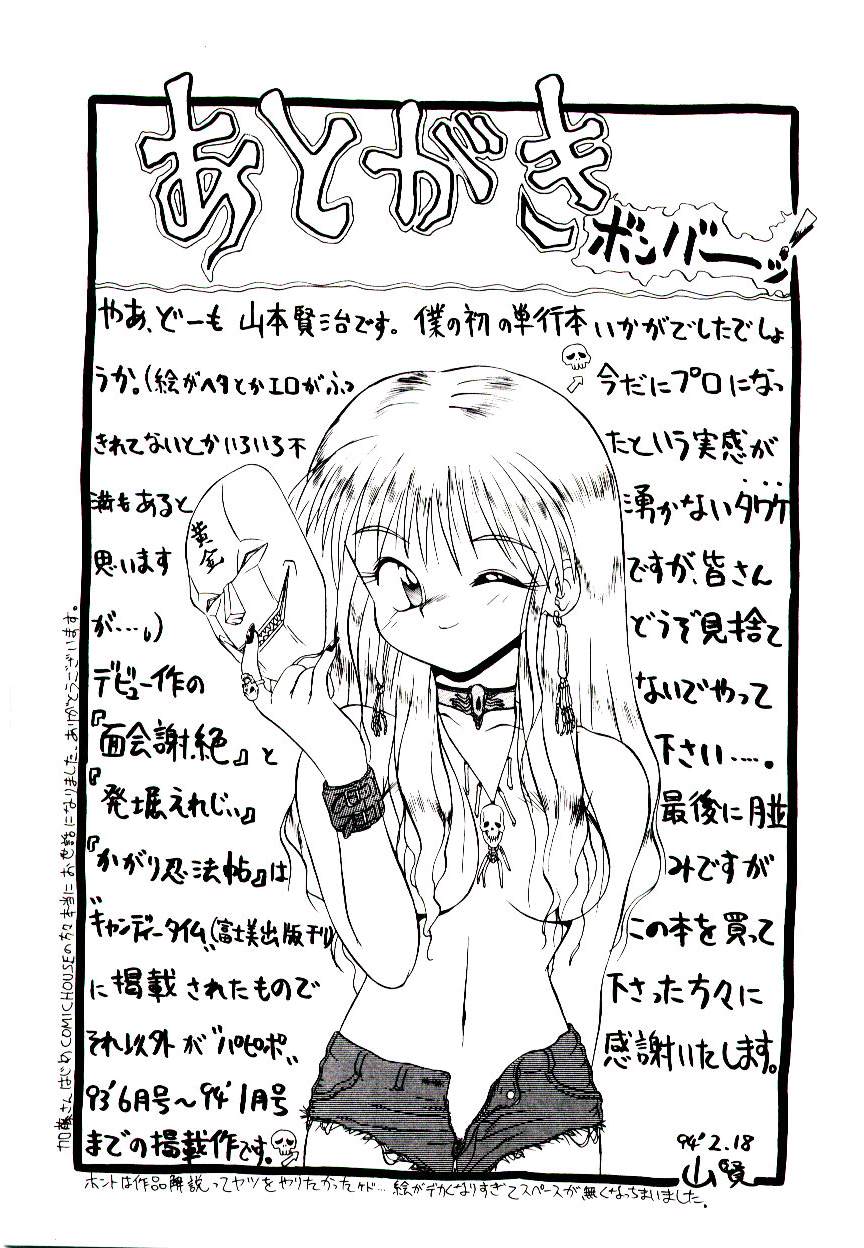 あとがき
ボンバーッ!
やあ、どーも 山本賢治です。僕の初の単行本いかがでしたでしょ
うか。(絵がヘタとかエロがふっ
きれてないとかいろいろ不
満もあると
思います
が…。)
デビュー作の
『面会謝絶』と
『発掘えれじぃ』
『かがり忍法帖』は
"キャンディータイム"(富士美出版刊)
に掲載されたもので
それ以外が"パピポ"
93'6月号〜94'1月号
までの掲載作です。
今だにプロになっ
たという実感が
湧かないタワケ
ですが、皆さん
どうぞ見捨て
ないでやって
下さい…。
最後に月並
みですが
この本を買って
下さった方々に
感謝いたします。
94'2.18
山賢
黄金
加藤さんはじめCOMIC HOUSEの方々本当にお世話になりました。ありがとうございます。
ホントは作品解説ってヤツをやりたかったケド…絵がデカくなりすぎてスペースが無くなっちまいました。